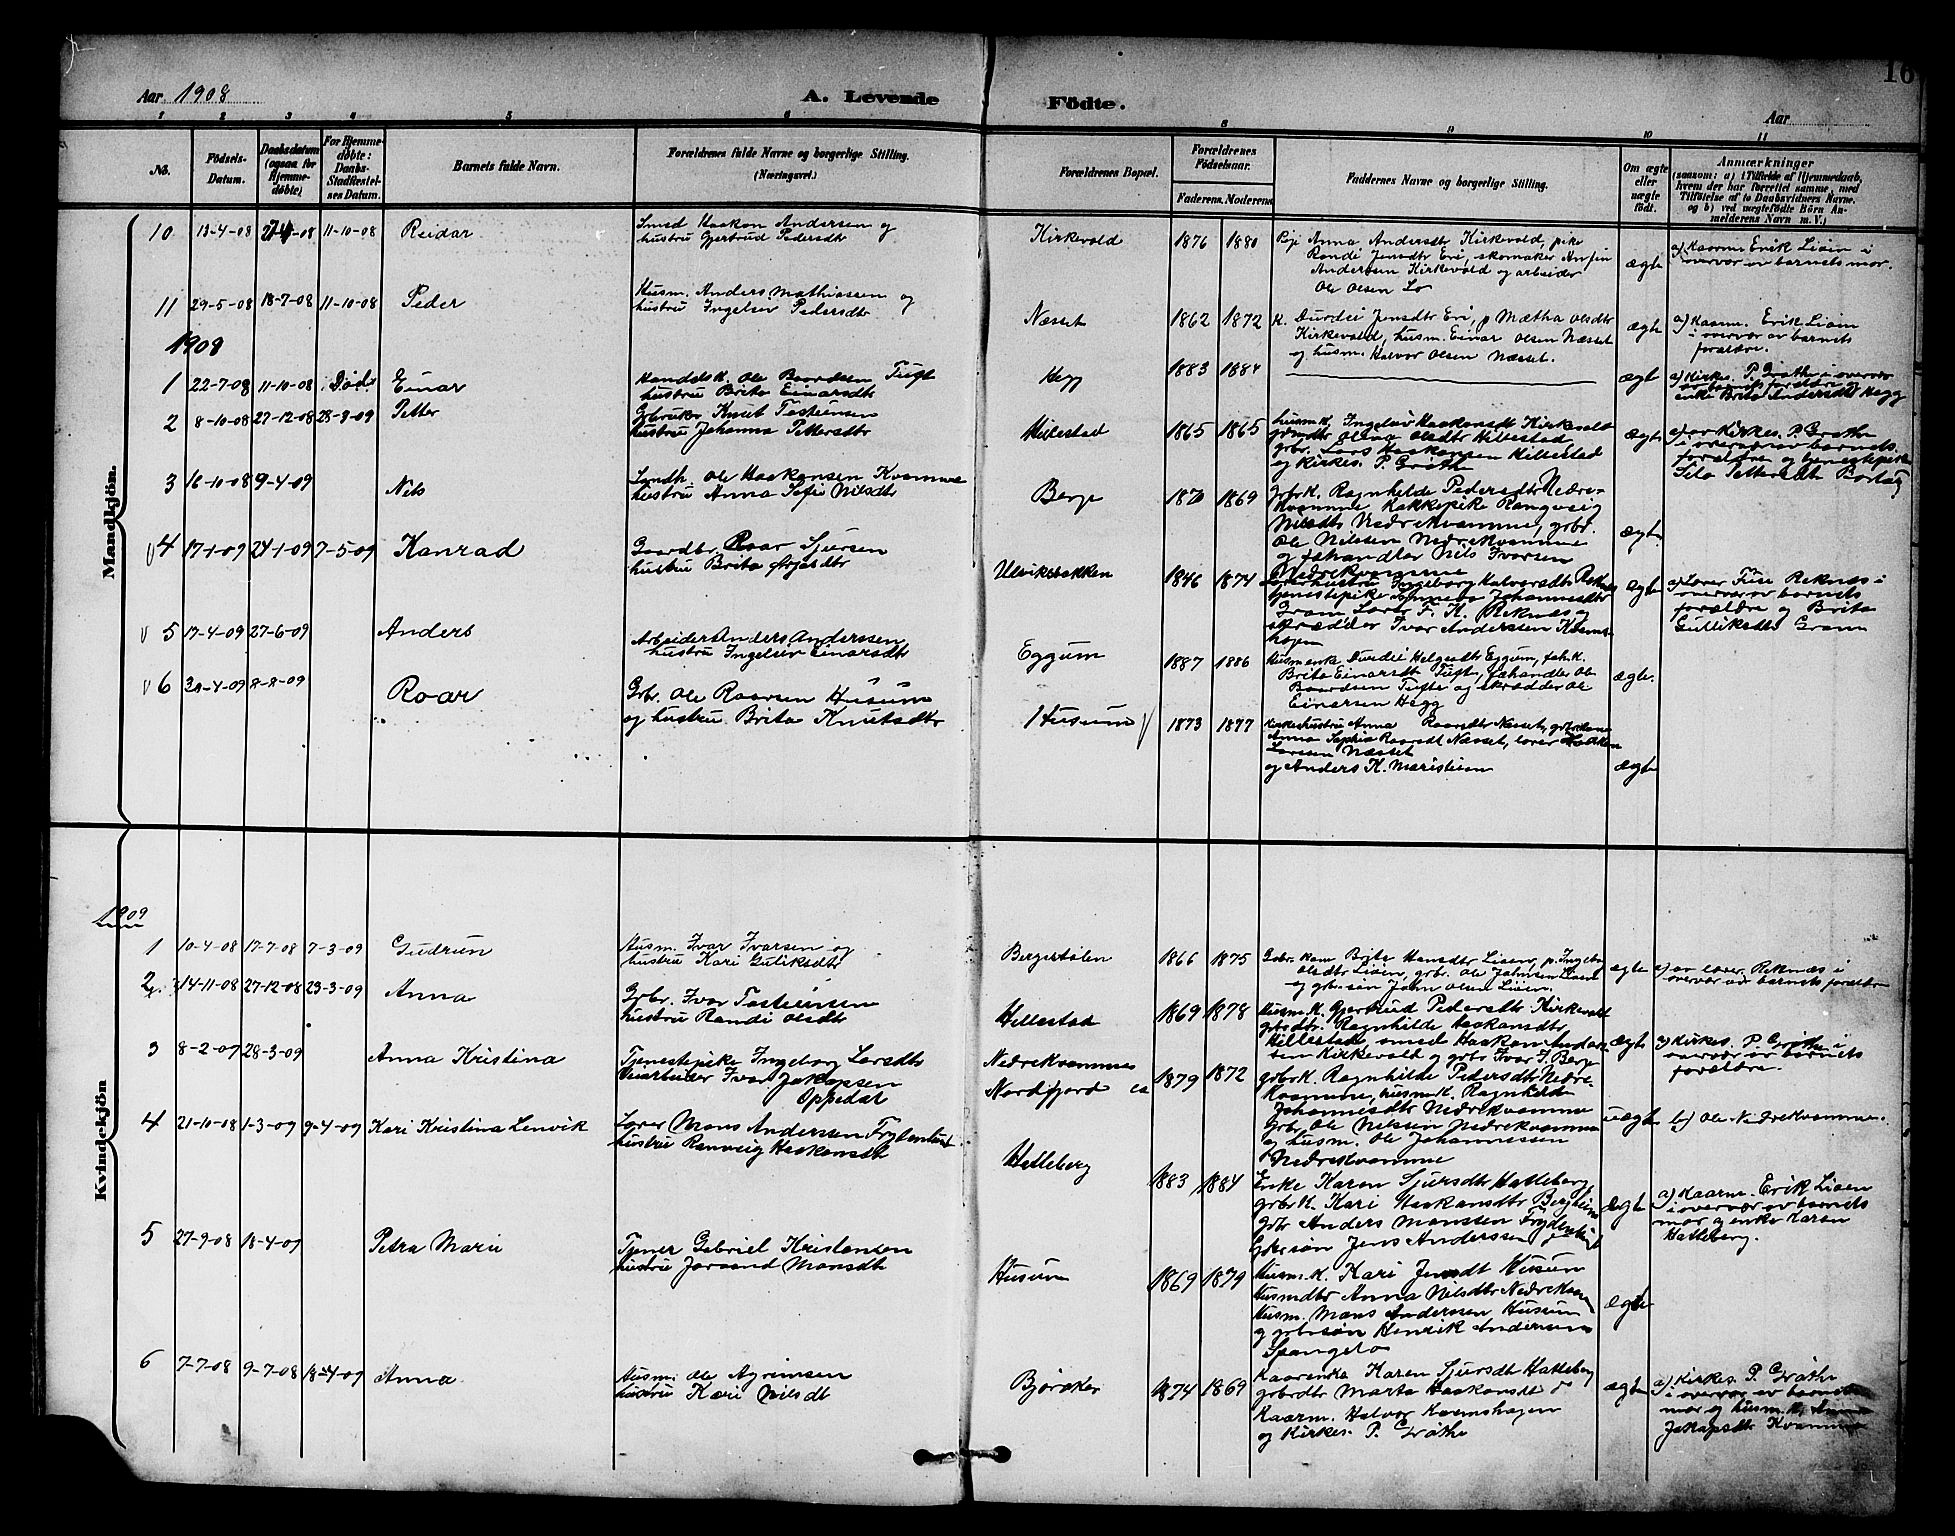 16
Aar 1908
A. Levende
Födte.
Aar
1 2 3 4 5 6 8 9 10 11
No.
Födsels-
Datum.
Daabsdatum
(ogsaa for
Hjemme-
döbte).
For Hjemme-
döbte:
Daabs-
Stadfæstel-
ses Datum.
Barnets fulde Navn.
Forældrenes fulde Navne og borgerlige Stilling.
(Næringsvei.)
Forældrenes Bopæl.
Forældrenes
Födselsaar.
Faderens. Moderens.
Faddernes Navne og borgerlige Stilling.
Om ægte
eller
uægte
födt.
Anmærkninger
(saasom: a) i Tilfælde af Hjemmedaab,
hvem der har forrettet samme, med
Tilföielse af to Daabsvidners Navne,
og b) ved uægtefödte Börn An-
melderens Navn m. V.)
Mandkjön.
10 13-4-08 11-10-08 Reidar
Smed Haakon Andersen og
hustru Gjertrud Pedersdtr
Kirkevold 1876 1880
Pige Anna Andersdtr Kirkevold, pike
Randi Jensdtr Eri, skomaker Anfin
Andersen Kirkevold og arbeider
Ole Olsen Lo
ægte
a) Kaarm. Erik Liøen i
overvær av barnets mor.
11 29-5-08 18-7-08 11-10-08 Peder
Husm. Anders Mathiassen og
hustru Ingeleiv Pedersdtr
Næsset 1862 1872
k. Durdei Jensdtr Eri, p Mætha Olsdtr
Kirkevold, husm. Einar Olsen Næsset
og husm. Halvor Olsen Næsset.
ægte
a) Kaarm. Erik Liøen
i overvær av barnets
forældre.
1908
1 22-7-08 11-10-08 Død Einar
Handelsk. Ole Baardsen Tuft
hustru Brita Einarsdtr
Hegg 1883 1884
ægt
a) Kirkes. P. Grøthe i overvær
av barnets forældre og
enke Brita Andersdtr Hegg
2 8-10-08 27-12-08 28-3-09 Petter
Grbruker Knut Tosteinsen
hustru Johanna Pettersdtr
Hillestad 1865 1865
husm.k. Ingeleiv Haakansdt Kirkevold
grmdtr Olina Olsdtr Hillestad
grbr. Lars Haakansen Hillestad
og Kirkes. P. Grøthe
ægte
a) av Kirkes. P. Grøthe
i overvær av barnets
forældre og tjenestepike
Sila Pettersdtr Borlaug
3 16-10-08 9-4-09 Nils
Landh. Ole Haakonsen Kvamme
hustru Anna Sofie Nilsdtr
Berge 1870 1869
grbrk. Ragnhilde Pedersdtr Nedre-
kvamme, kokkepike Rangveig
Nilsdtr Nedrekvamme, grbr.
Ole Nilssen Nedrekvamme
og fæhandler Nils Ivarsen
Nedrekvamme
ægte
V 4 17-1-09 24-1-09 7-5-09 Konrad
Gaardbr. Roar Sjursen
hustru Brita
Ulviksbakken 1846 1874
Lærerhustru Ingeborg Halvorsdtr Reknes
tjenestepike Synneva Johannesdtr
Gram Lærer F. K. Reknes og
skrædder Ivar Anderssen Kaams-
hagen
ægte
a) Lærer Fuse Reknæs i
overvær av barnets
forældre og Brita
Gulliksdtr Gram
V 5 17-4-09 27-6-09 Anders
Arbeider Anders Anderssen
hustru Ingeleiv Einarsdtr
Eggum 1887 1886
Husm enke Durdei Helgesdtr Eggum, fæh.k.
Brita Einarsdt Tufte, fæhandler Ole
Baardsen Tufte og skrædder Ole
Einarsen Hegg
ægte.
V 6 -4-09 8-8-09 Roar
Grbr. Ole Roarsen Husum
og hustru Brita Knutsdtr
Husum 1873 1877
hustru Anna Roarsdtr Næsset,
Anna Sophia Roarsdt Næsset, lærer Haakon
Larssen Næsset
og Anders K. Maristuen
ægte
Kvindekjön
1909
1 10-4-08 17-7-08 7-3-09 Gudrun
Husm. Ivar Ivarsen og
hustru Kari Guliksdtr
Bergestølen 1866 1875
Gbr. kone Brita Hansdtr Liøen, p. Ingebor
Olsdtr Liøen, grbr. Ole Johnsen Liøen
og grbr.søn John Olsen Liøen.
ægte
a) av lærer Reknæs i
overvær av barnets forældre
2 14-11-08 27-12-08 23-3-09 Anna
Grbr. Ivar Tosteinsen
hustru Randi Olsdtr
Hillestad 1869 1878
Husm.k. Gjertrud Pedersdtr Kirkevold
grbrdtr. Ragnhilde Haakansdtr
Hillestad, smed Haakon Ander-
sen Kirkevold og grbr Ivar J. Berge
ægte
a) Kirkes. P. Grøthe i
overvær av barnets
forældre.
3 8-2-09 28-3-09 Anna Kristina
Tjenestepike Ingeborg Larsdtr
Veiarbeider Ivar Jakopsen
Oppedal
Nedrekvamme
Nordfjord 1879 1872
grbrk. Ragnhilde Pedersdtr Nedre-
kvamme, husm.k. Ragnhilde
Johannesdtr Nedrekvamme
Grbr. Ole Nilssen Nedrekvamme
og husm. Ole Johannessen
Nedrekvamme
uægte
b) Ole Nedrekvamme.
4 21-10-08 1-3-09 9-4-09 Kari Kristina Lenvik
Lærer Mons Anderssen Frydenlund
hustru Ranveig Haakansdt
Hatleberg 1883 1884
Enke Karen Sjursdt Hatleberg
grbr.k. Kari Haakansdtr Bergheim
Grbr Anders Monssen Frydenlund
Gbrsøn Jens Anderssen
ægte
a) Kaarm. Erik Liøen
i overvær av barnets
mor og enke Karen
Hatleberg.
5 27-9-08 18-4-09 Petra Marie
Tjener Gabriel Kristensen
hustru Joraand Monsdt
Husum 1869 1879
Husm.k. Kari Jensdt Husum
Husmdtr Anna Nilsdtr Nedrekvamme
Husm. Mons Anderssen Husum
og grbrsøn Henrik Anderssen
Spangelo
ægte
6 7-7-08 9-7-08 18-4-09 Anna
Husm. Ole Agrimsen
hustru Kari Nilsdt
Bjøraker 1874 1869
Kaarenke Karen Sjursdt Hatleberg
grbrdtr Marta Haakonsdt do
Kaarm. Halvor Kvemshagen
og Kirkes. P. Grøthe
ægte
a) Kirkes. P. Grøthe
i overvær av barnets
mor og husm.k.
Jakopsdtr Kvamme